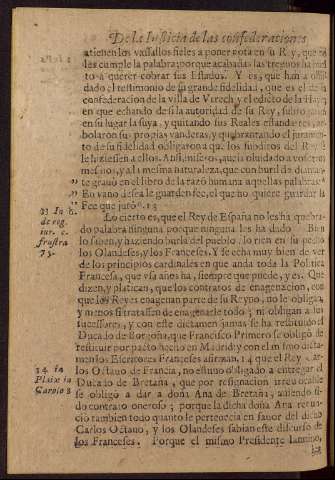 De la Iusticia de las confederaciones
atienen los vassallos fieles a poner nota en su Rey, que no
les cumple la palabra; porque acabadas las treguas ha
to a querer cobrar sus Estados. Y es, que han a olui
dado el testimonio de su grande fidelidad, que es el de la
confederacion de la villa de Vtrech, y el edicto de la Haya
en que echando de si la autoridad de su Rey, substituyeron
en su lugar la suya, y quitando los Reales estandartes, ar
bolaron sus propias vanderas, y quebrantando el juramen
to de su fidelidad obligaron a que los subditos del Rey se
le hiziessen a ellos. Ansi, señores, aueis oluidado a vosotros
mesmos, y a la mesma naturaleza, que con buril de diaman
te grauò en el libro de la razõ humana aquellas palabras:
„ En vano desea le guarden fee, el que no quiere guardar la
„ Fee que jurò. 13
13 In h.
de reg.
iur. c.
frustra
75.
Lo cierto es, que el Rey de España no les ha quebra
do palabra ninguna porque ninguna les ha dado. Bien
lo saben, y haziendo burla del pueblo, lo rien en su pecho
los Olandeses, y los Franceses. Y se echa muy bien de ver
de los principios cardinales en que anda toda la Politica
Francesa, que vsa años ha, siempre que puede, y es. Que
dizen, y platican, que los contratos de enagenacion, con
que los Reyes enagenan parte de su Reyno, no le obligan,
y menos si tratassen de enagenarle todo; ni obligan a los
sucessores, y con este dictamen jamas se ha restituido el
Ducado de Borgoña, que Francisco Primero se obligó de
restituir por pacto hecho en Madrid: y con el mismo dicta
men los Escritores Franceses afirman, 14 que el Rey Car
los Octauo de Francia, no estuuo obligado a entregar el
14 In
Plaix in
Carolo 8
Ducado de Bretaña, que por resignacion irreuocable
se obligò a dar a doña Ana de Bretaña, auiendo si
do contrato oneroso; porque la dicha doña Ana renun
ciò tambien todo quanto le pertenecia en fauor del dicho
Carlos Octauo, y los Olandeses sabian este discurso de
los Franceses. Porque el mismo Presidente Iannino,